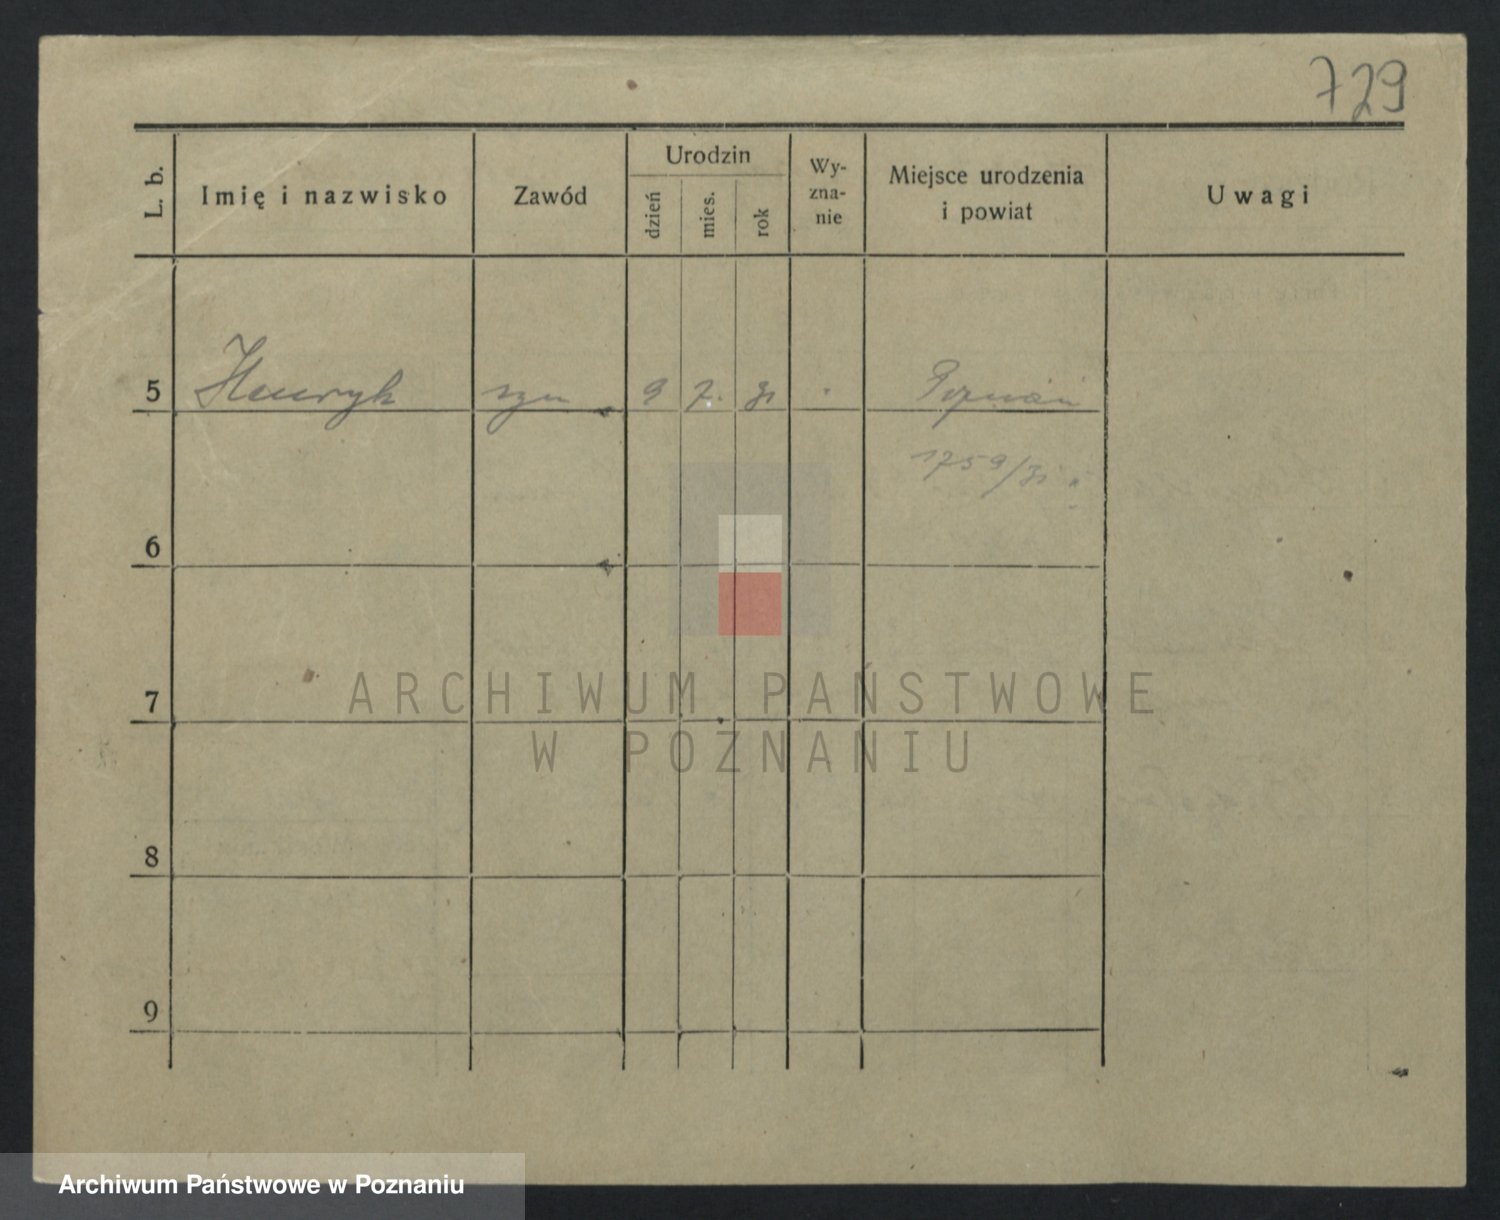 729
L. b. Imię i nazwisko Zawód Urodzin dzień mies. rok Wy-zna-nie Miejsce urodzenia i powiat Uwagi
5 Henryk syn 9 7. 31 " Poznań
1759/31
6
7
8
9
ARCHIWUM PAŃSTWOWE
W POZNANIU
Archiwum Państwowe w Poznaniu